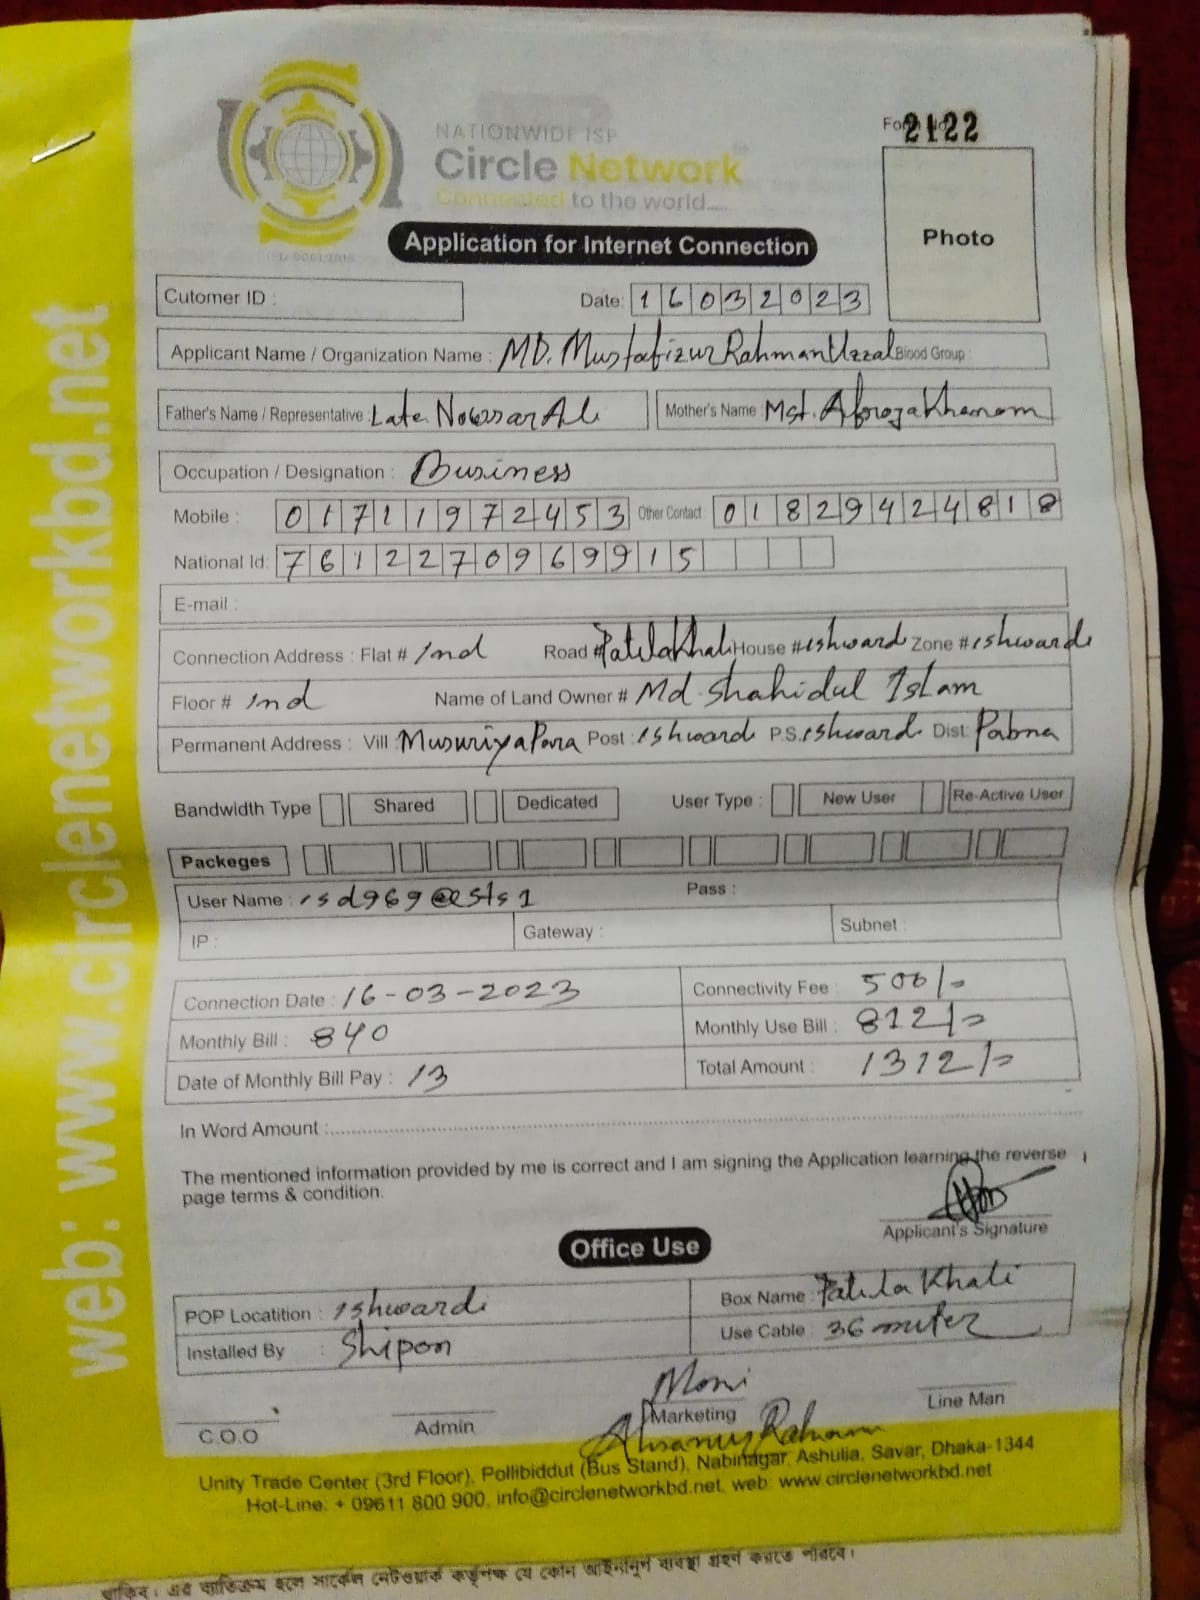 web: www.circlenetworkbd.net
NATIONWIDE ISP
Circle Network
Connected to the world....
ISO 9001:2015
2122
Photo
Application for Internet Connection
Cutomer ID :
Date: 16032023
Applicant Name / Organization Name : MD. Mustafizur Rahman Uzzal Blood Group :
Father's Name / Representative : Late. Ali Mother's Name : Mst. Afroja Khanom
Occupation / Designation : Business
Mobile : 01711972453 Other Contact 01829424818
National Id: 7612270969915
E-mail :
Connection Address : Flat # 1nd Road # House # ishwardi Zone # ishwardi
Floor # 1nd Name of Land Owner # Md. Shahidul Islam
Permanent Address : Vill : MusuriyaPara Post : ishwardi P.S. ishwardi Dist: Pabna
Bandwidth Type Shared Dedicated User Type : New User Re-Active User
Packeges
User Name : isd969@ Pass :
IP : Gateway : Subnet :
Connection Date : 16-03-2023 Connectivity Fee : 500/=
Monthly Bill : 840 Monthly Use Bill : 812/=
Date of Monthly Bill Pay : 13 Total Amount : 1312/=
In Word Amount :
The mentioned information provided by me is correct and I am signing the Application learning the reverse
page terms & condition.
Applicant's Signature
Office Use
POP Locatition : ishwardi Box Name : Khali
Installed By : Shipon Use Cable : 36 miter
Moni
C.O.O Admin Marketing Line Man
Rahman
Unity Trade Center (3rd Floor), Pollibiddut (Bus Stand), Nabinagar, Ashulia, Savar, Dhaka-1344
Hot-Line: + 09611 800 900, info@circlenetworkbd.net, web: www.circlenetworkbd.net
থাকিব। এর ব্যতিক্রম হলে সার্কেল নেটওয়ার্ক কর্তৃপক্ষ যে কোন আইনানুগ ব্যবস্থা গ্রহণ করতে পারবে।